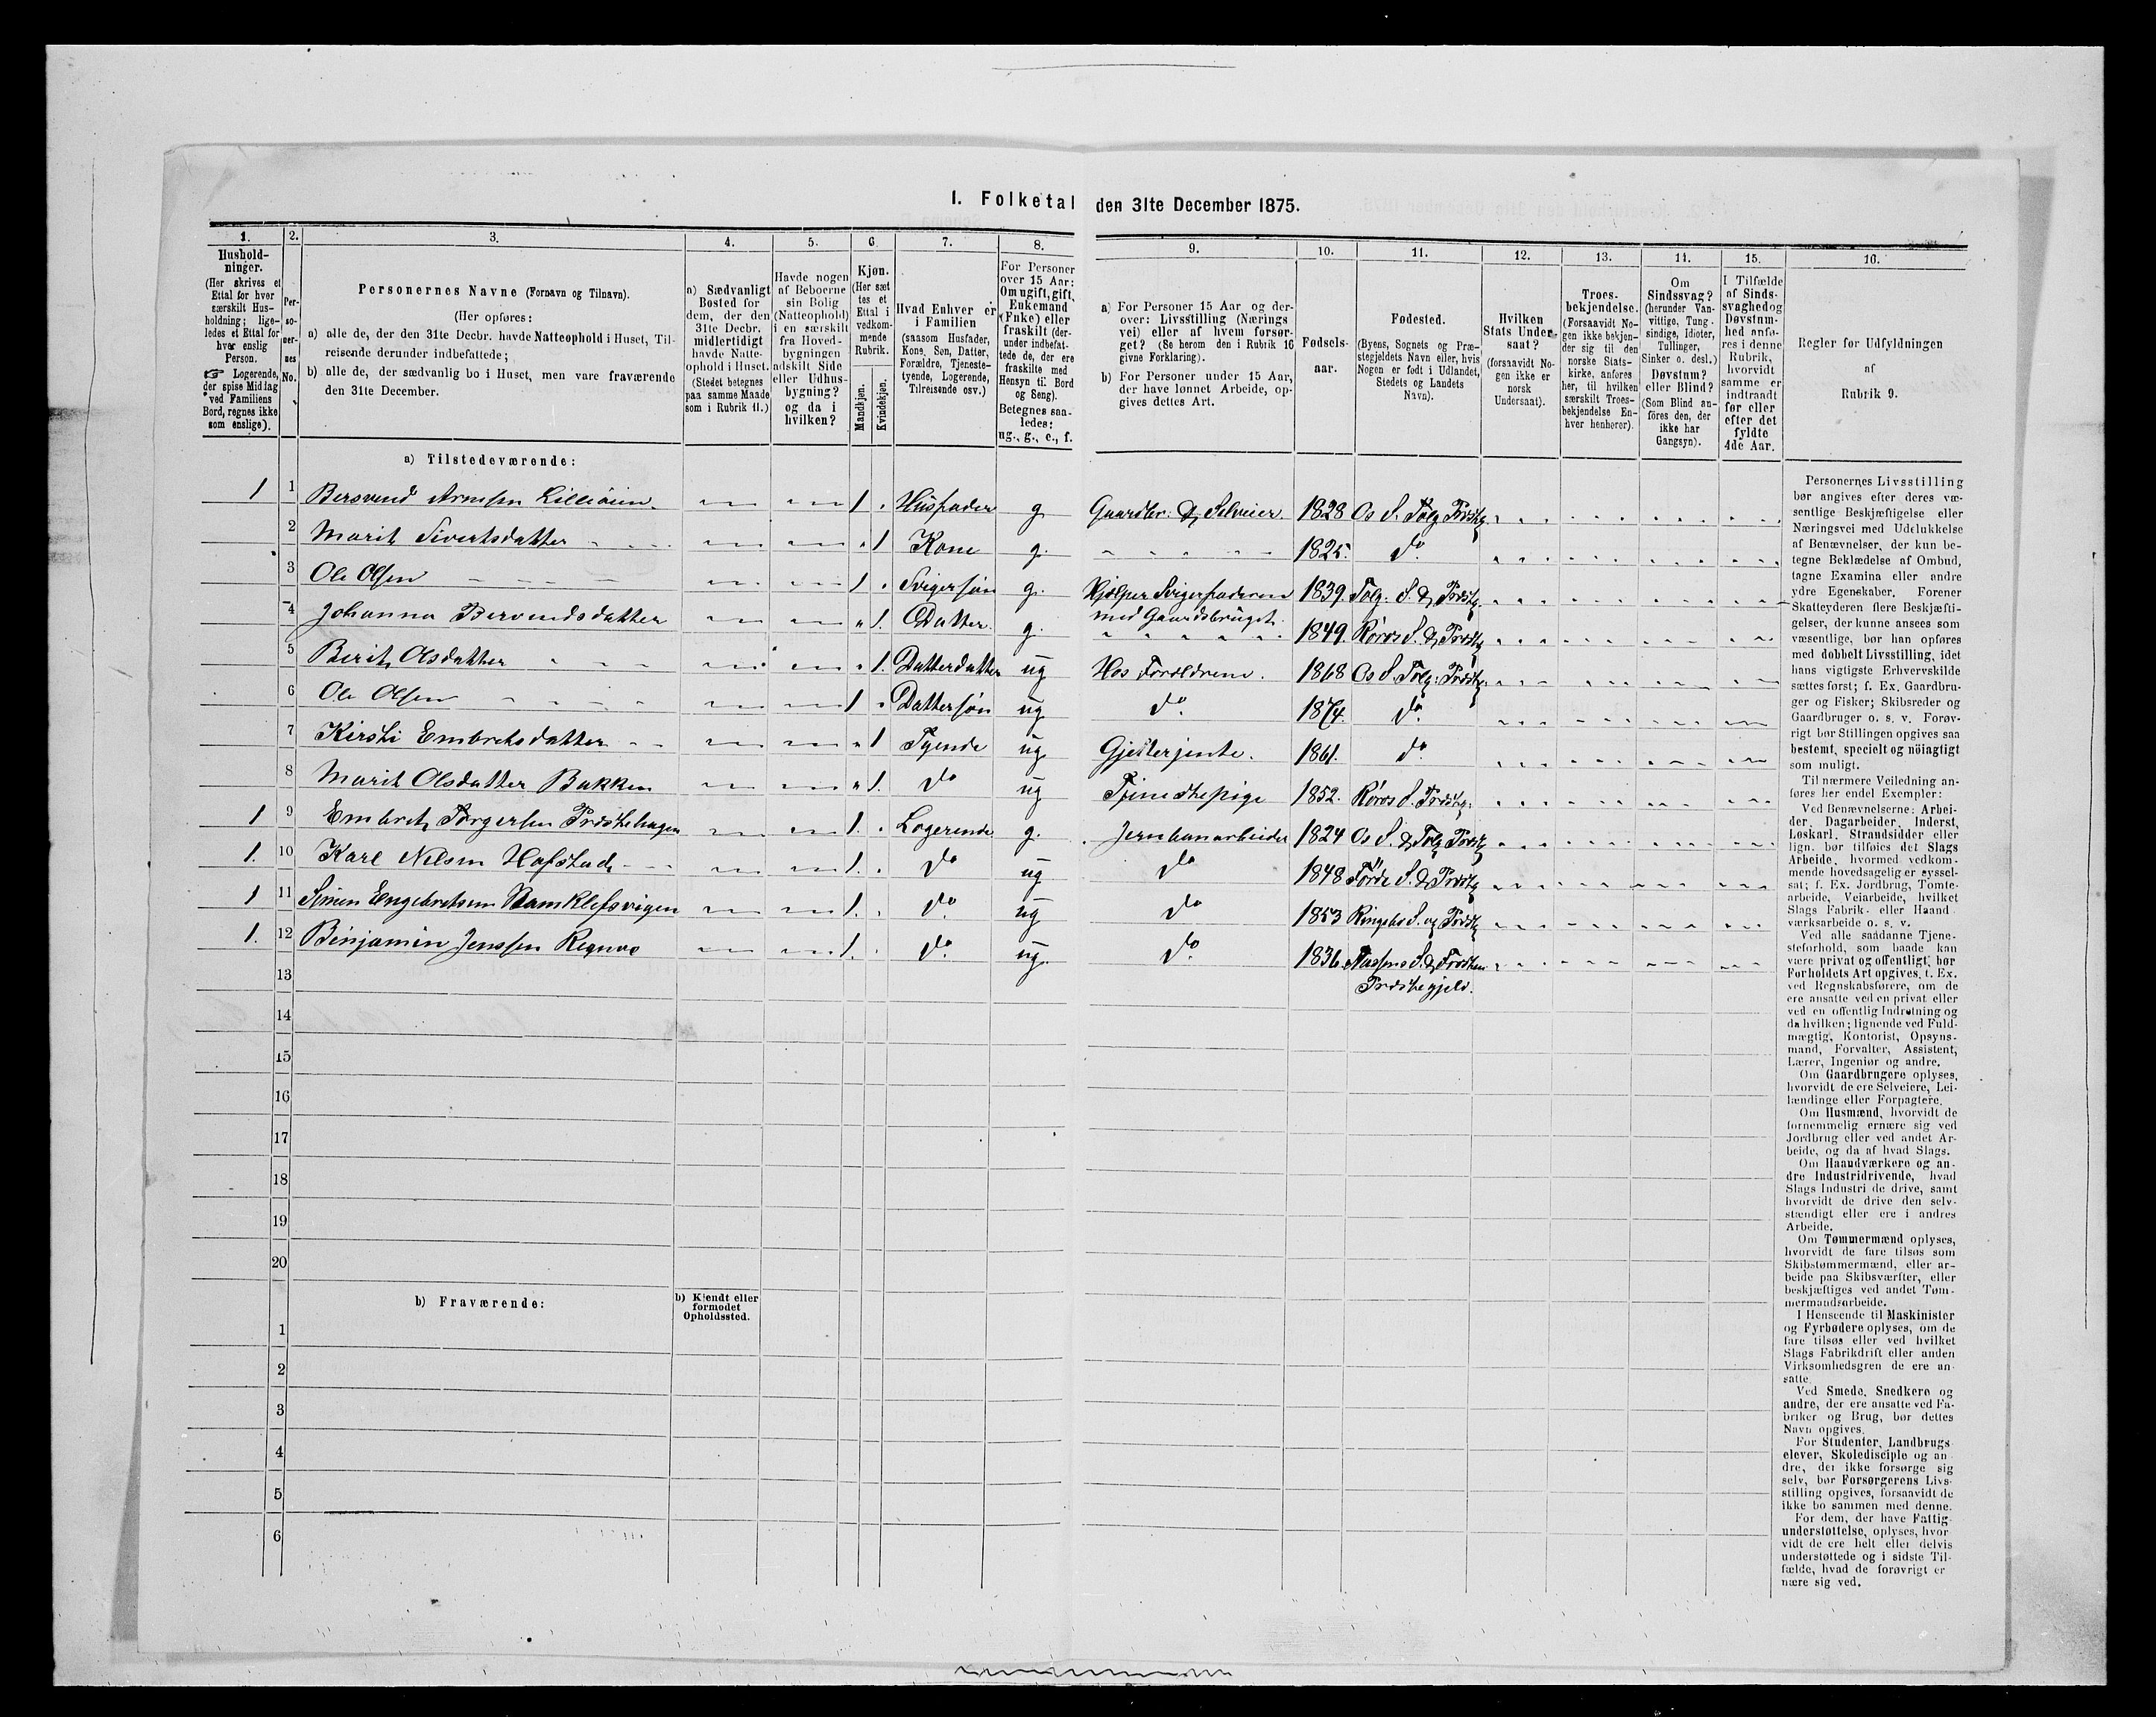 I. Folketal den 31te December 1875.
1. 2. 3. 4. 5. 6. 7. 8. 9. 10. 11. 12. 13. 14. 15. 16.
Hushold-
ninger.
(Her skrives et
Ettal for hver
særskilt Hus-
holdning; lige-
ledes et Ettal for
hver enslig
Person.
☞ Logerende,
der spise Middag
ved Familiens
Bord, regnes ikke
som enslige).
Per-
so-
ner-
nes
No.
Personernes Navne (Fornavn og Tilnavn).
(Her opføres:
a) alle de, der den 31te Decbr. havde Natteophold i Huset, Til-
reisende derunder indbefattede;
b) alle de, der sædvanlig bo i Huset, men vare fraværende
den 31te December.
a) Sædvanligt
Bosted for
dem, der den
31te Decbr.
midlertidigt
havde Natte-
ophold i Huset.
(Stedet betegnes
paa samme Maade
som i Rubrik 11.)
Havde nogen
af Beboerne
sin Bolig
(Natteophold)
i en særskilt
fra Hoved-
bygningen
adskilt Side
eller Udhus-
bygning?
og da i
hvilken?
Kjøn.
(Her sæt
tes et
Ettal i
vedkom-
mende
Rubrik.
Mandkjøn.
Kvindekjøn.
Hvad Enhver er
i Familien
(saasom Husfader,
Kone, Søn, Datter,
Forældre, Tjeneste-
tyende, Logerende,
Tilreisende osv.)
For Personer
over 15 Aar:
Om ugift, gift,
Enkemand
(Enke) eller
fraskilt (der-
under indbefat-
tede de, der ere
fraskilte med
Hensyn til Bord
og Seng).
Betegnes saa-
ledes:
ug., g., e., f.
a) For Personer 15 Aar og der-
over: Livsstilling (Nærings
vei) eller af hvem forsør-
get? (Se herom den i Rubrik 16
givne Forklaring).
b) For Personer under 15 Aar,
der have lønnet Arbeide, op-
gives dettes Art.
Fødsels-
aar.
Fødested.
(Byens, Sognets og Præ-
stegjeldets Navn eller, hvis
Nogen er født i Udlandet,
Stedets og Landets
Navn).
Hvilken
Stats Under-
saat?
(forsaavidt No-
gen ikke er
norsk
Undersaat).
Troes-
bekjendelse.
(Forsaavidt No-
gen ikke bekjen-
der sig til den
norske Stats-
kirke, anføres
her, til hvilken
særskilt Troes-
bekjendelse En-
hver henhører).
Om
Sindssvag?
(herunder Van-
vittige, Tung-
sindige, Idioter,
Tullinger,
Sinker o. desl.)
Døvstum?
eller Blind?
(Som Blind an-
føres den, der
ikke har
Gangsyn).
I Tilfælde
af Sinds-
svaghed og
Døvstum-
hed anfø-
res i denne
Rubrik,
hvorvidt
samme er
indtraadt
før eller
efter det
fyldte
4de Aar.
Regler for Udfyldningen
af
Rubrik 9.
a) Tilstedeværende:
1 1 Bersvend Arnesen Lilleøien 1 Husfader g Gaardbr. & Selveier. 1828 Os S. Tolg Præstg
2 Marit Sivertsdatter 1 Kone g. 1825. do.
3 Ole Olsen 1 Svigersøn g. Hjælper Svigerfaderen 1839. Tolg. S. & Præstg.
med Gaardsbruget.
4 Johanna Bersvendsdatter 1. Datter. g. 1849. Røros S. & Præstg
5 Berit Olsdatter 1. Datterdatter ug Hos Forældrene. 1868 Os S. Tolg. Præstg.
6 Ole Olsen 1 Dattersøn ug do. 1874. do.
7 Kirsti Embretsdatter 1 Tyende ug Gjeterjente. 1861. do.
8 Marit Olsdatter Bakken 1. do ug Tjenestepige 1852. Røros S. Præstg.
1 9 Embret Torgersen Præstehagen 1. Logerende g. Jernbanarbeider 1824 Os S. & Tolg Præstg
1. 10 Karl Nilsen Hofstad 1. do ug do 1848 Førde S. & Præstg
1 11 Simen Engebretsen 1. do. ug do 1853 Ringebo S. og Præstg
1. 12 Benjamin Jenssen 1. do. ug. do. 1836
Præstegjeld.
13
14
15
16
17
18
19
20
b) Fraværende:
b) Kjendt eller
formodet
Opholdssted.
1
2
3
4
5
6
Personernes Livsstilling
bør angives efter deres væ-
sentlige Beskjæftigelse eller
Næringsvei med Udelukkelse
af Benævnelser, der kun be-
tegne Beklædelse af Ombud,
tagne Examina eller andre
ydre Egenskaber. Forener
Skatteyderen flere Beskjæfti-
gelser, der kunne ansees som
væsentlige, bør han opføres
med dobbelt Livsstilling, idet
hans vigtigste Erhvervskilde
sættes først; f. Ex. Gaardbru-
ger og Fisker; Skibsreder og
Gaardbruger o. s. v. Forøv-
rigt bør Stillingen opgives saa
bestemt, specielt og nöiagtigt
som muligt.
Til nærmere Veiledning an-
føres her endel Exempler:
Ved Benævnelserne: Arbei-
der, Dagarbeider, Inderst,
Løskarl, Strandsidder eller
lign. bør tilføies det Slags
Arbeide, hvormed vedkom-
mende hovedsagelig er syssel-
sat; f. Ex. Jordbrug, Tomte-
arbeide, Veiarbeide, hvilket
Slags Fabrik- eller Haand-
værksarbeide o. s. v.
Ved alle saadanne Tjene-
steforhold, som baade kan
være privat og offentligt, bør
Forholdets Art opgives, f. Ex.
ved Regnskabsførere, om de
ere ansatte ved en privat eller
ved en offentlig Indretning og
da hvilken; lignende ved Fuld-
mægtig, Kontorist, Opsyns-
mand, Forvalter, Assistent,
Lærer, Ingeniør og andre.
Om Gaardbrugere oplyses,
hvorvidt de ere Selveiere, Lei-
lændinge eller Forpagtere.
Om Husmænd, hvorvidt de
fornemmelig ernære sig ved
Jordbrug eller ved andet Ar-
beide, og da af hvad Slags.
Om Haandværkere og an-
dre Industridrivende, hvad
Slags Industri de drive, samt
hvorvidt de drive den selv-
stændigt eller ere i andres
Arbeide.
Om Tømmermænd oplyses,
hvorvidt de fare tilsøs som
Skibstømmermænd, eller ar-
beide paa Skibsværfter, eller
beskjæftiges ved andet Tøm-
mermandsarbeide.
I Henseende til Maskinister
og Fyrbødere oplyses, om de
fare tilsøs eller ved hvilket
Slags Fabrikdrift eller anden
Virksomhedsgren de ere an-
satte.
Ved Smede, Snedkere og
andre, der ere ansatte ved Fa-
briker og Brug, bør dettes
Navn opgives.
For Studenter, Landbrugs
elever, Skoledisciple og an-
dre, der ikke forsørge sig
selv, bør Forsørgerens Livs-
stilling opgives, forsaavidt de
ikke bo sammen med denne.
For dem, der have Fattig-
understøttelse, oplyses, hvor
vidt de ere helt eller delvis
understøttede og i sidste Til-
fælde, hvad de forøvrigt er
nære sig ved.